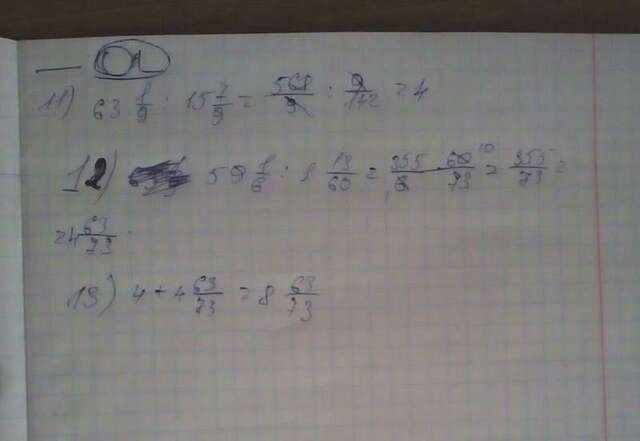 11) 63 1/9 : 15 7/9 = 568/9 : 9/142 = 4
12) 59 1/6 : 1 13/60 = 355/6 · 60/73 10 = 355/73 =
= 4 63/73
13) 4 + 4 63/73 = 8 63/73